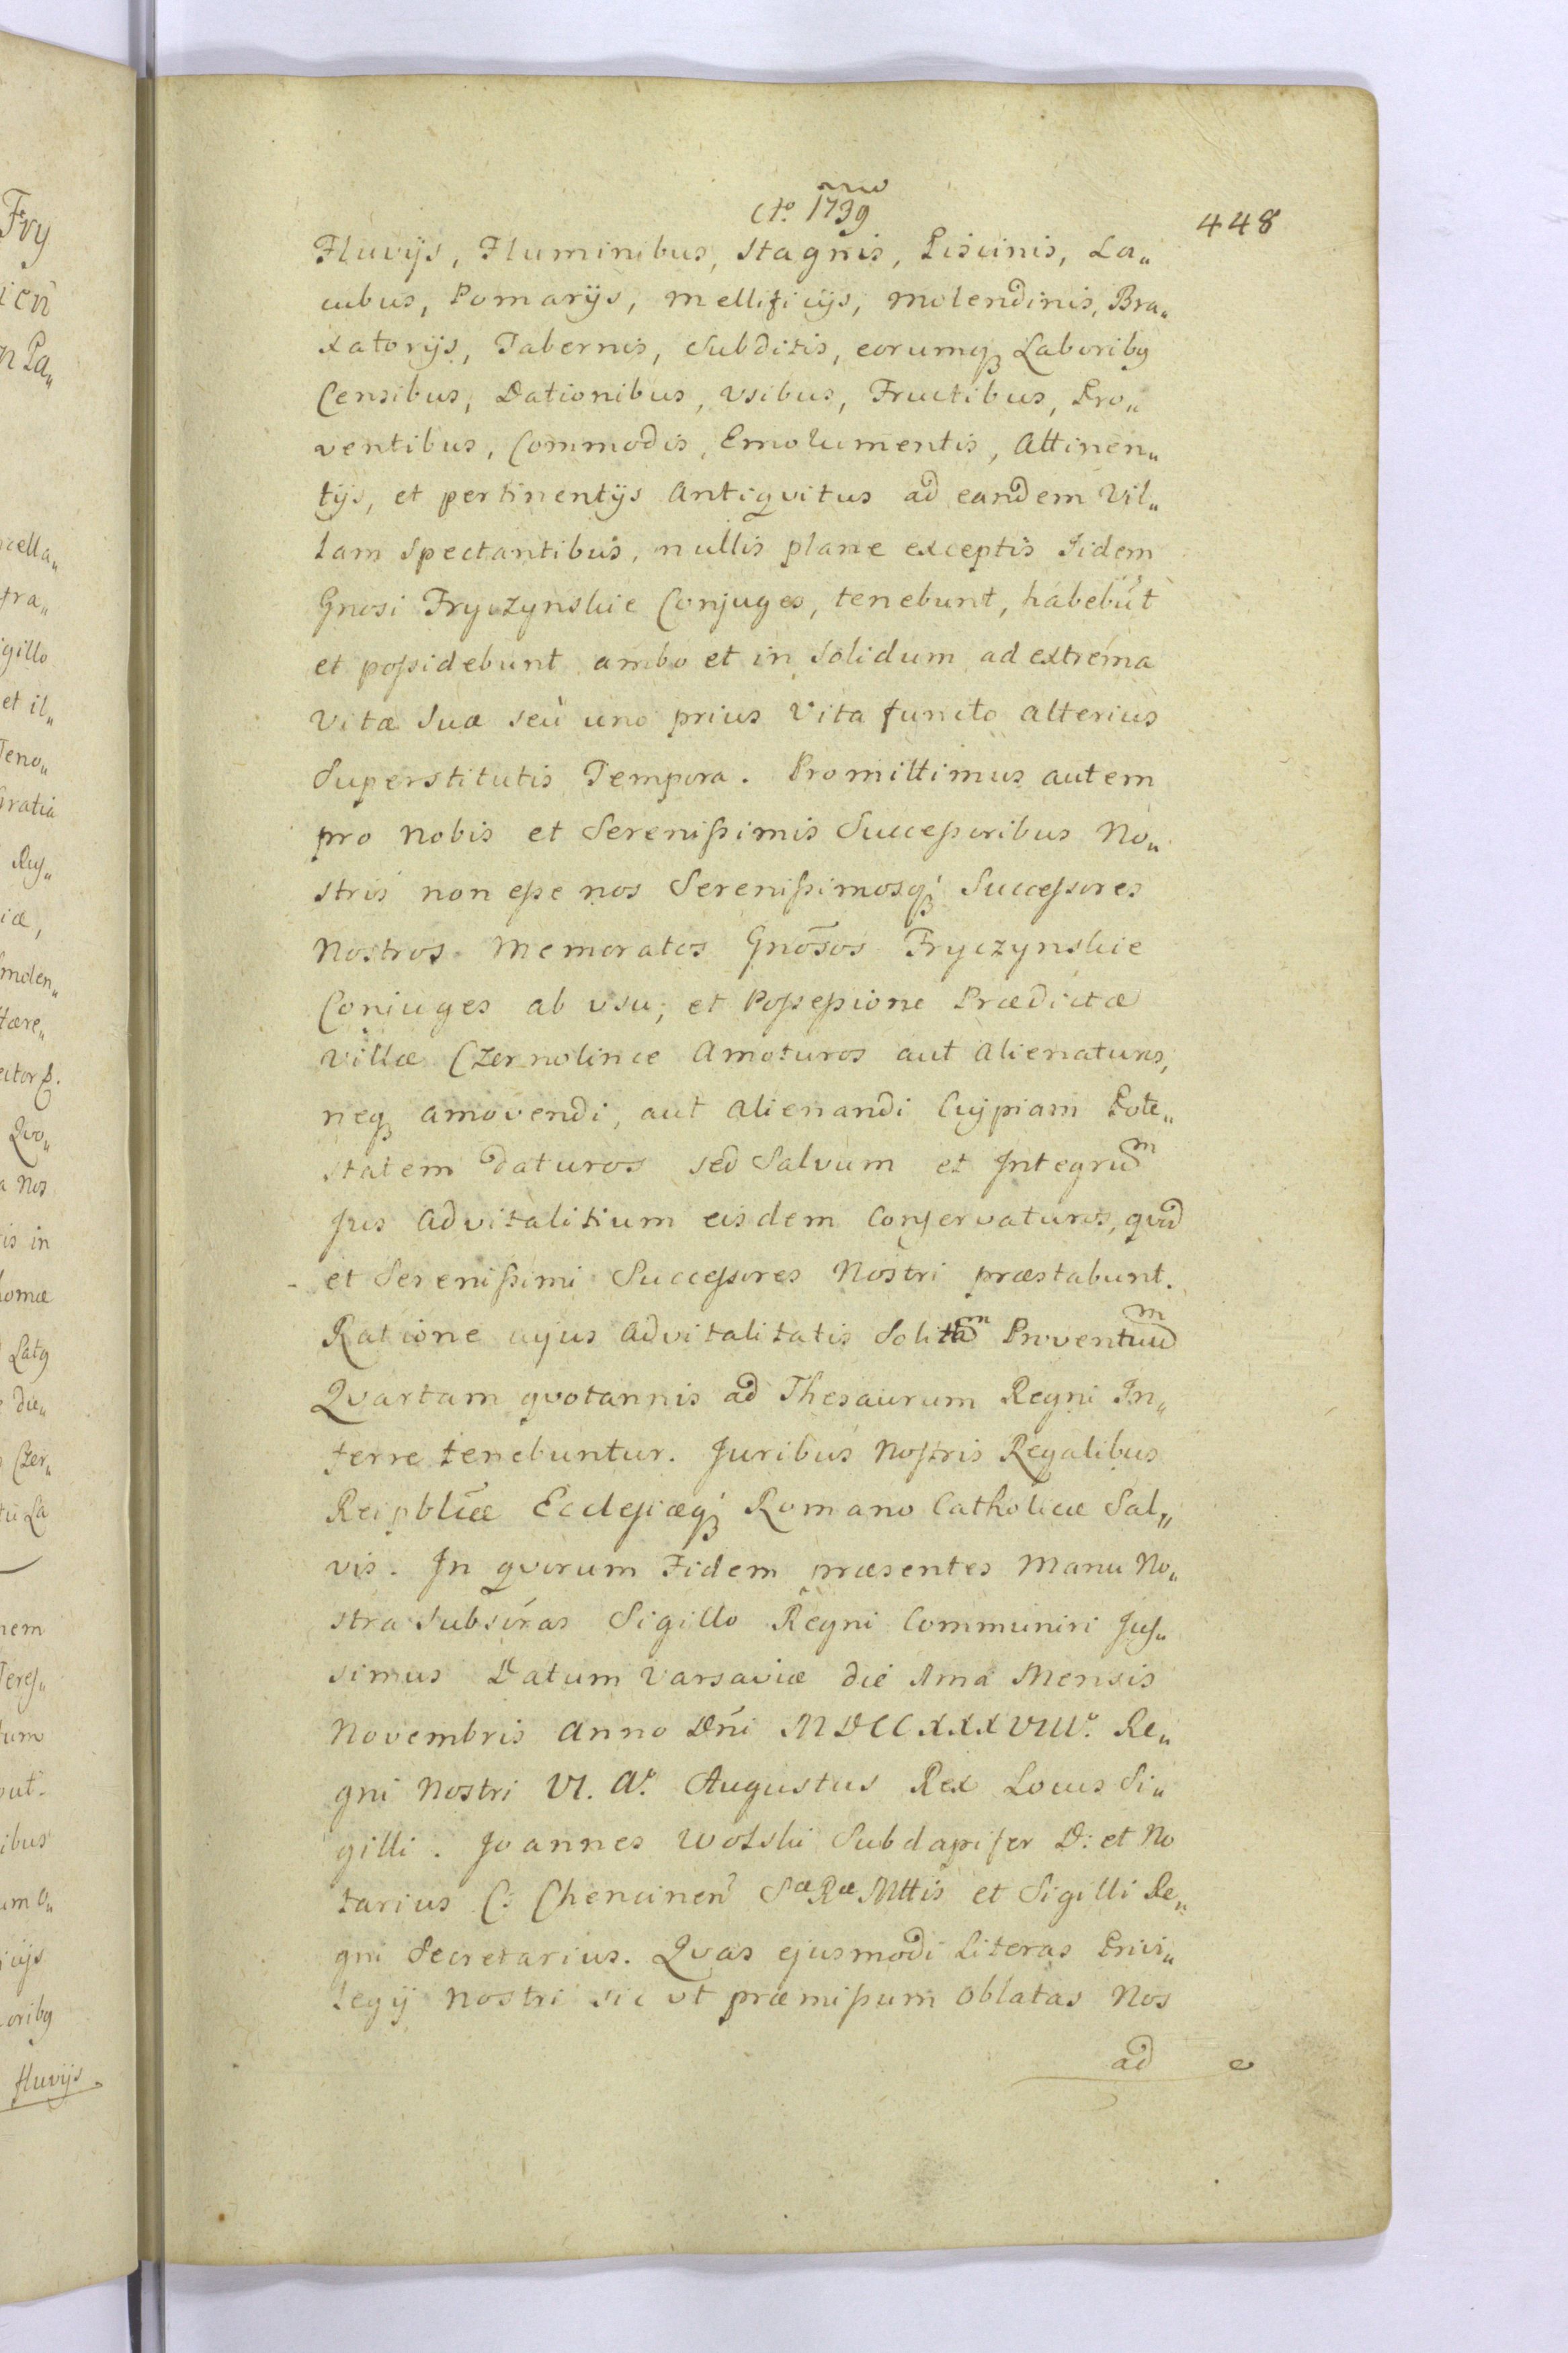 Ao. 1739
448
Fluvijs, Fluminibus, Stagnis, Piscinis, La„
cubus, Pomarijs, Mellificijs, Molendinis, Bra„
xatorijs, Tabernis, Subditis, eorumq; Laboribq
Censibus, Dationibus, vsibus, Fructibus, Pro„
ventibus, Commodis, Emolumentis, Attinen„
tijs, et pertinentijs Antiqvitus ad eandem Vil„
lam Spectantibus, nullis plane exceptis Iidem
Gnosi Fryczynskie Conjuges, tenebunt, habebūt
et poſsidebunt ambo et in Solidum ad extrema
Vitæ Suæ seù uno prius Vita functo alterius
Superstitutis Tempora. Promittimus autem
pro Nobis et Sereniſsimis Succeſsoribus No„
stris non eſse nos Sereniſsimosq; Succeſsores
Nostros Memoratos Gnōsos Fryczynskie
Conjuges ab vsu, et Poſseſsione Prædictæ
Villæ Czernolince Amoturos aut Alienaturos,
neq; amovendi, aut Alienandi Cujpiam Pote„
statem daturos sed Salvum et Integrum
Jus Advitalitium eisdem Conſervaturos, qvod
et Sereniſsimi Succeſsores Nostri præstabunt.
Ratione cujus Advitalitatis Solitam Proventuum
Qvartam qvotannis ad Thesaurum Regni In„
ferre tenebuntur. Juribus Noſtris Regalibus
Reipblicæ Eccleſiæq; Romano Catholicæ Sal„
vis. In qvorum Fidem præsentes Manu No„
stra Subscras Sigillo Regni Communiri Juſ„
simus Datum Varsaviæ die Ima Mensis
Novembris Anno Dni MDCCXXXVIII. Re„
gni Nostri VI. Ao. Augustus Rex Locus Si„
gilli. Joannes Wolski Subdapifer D: et No
tarius C: Chencinen Sæ Ræ Mttis et Sigilli Re„
gni Secretarius. Qvas ejusmodi Literas Privi„
legij Nostri sic vt præmiſsum Oblatas Nos
ad
Fry
icn
n Pa„
ncella„
fra„
igillo
et il„
Teno„
Gratia
Ruſ„
iæ,
Smolen„
Qvo„
a Nos
is in
Latq
Czer„
nem
Tereſ„
ibus
oribq
fluvijs